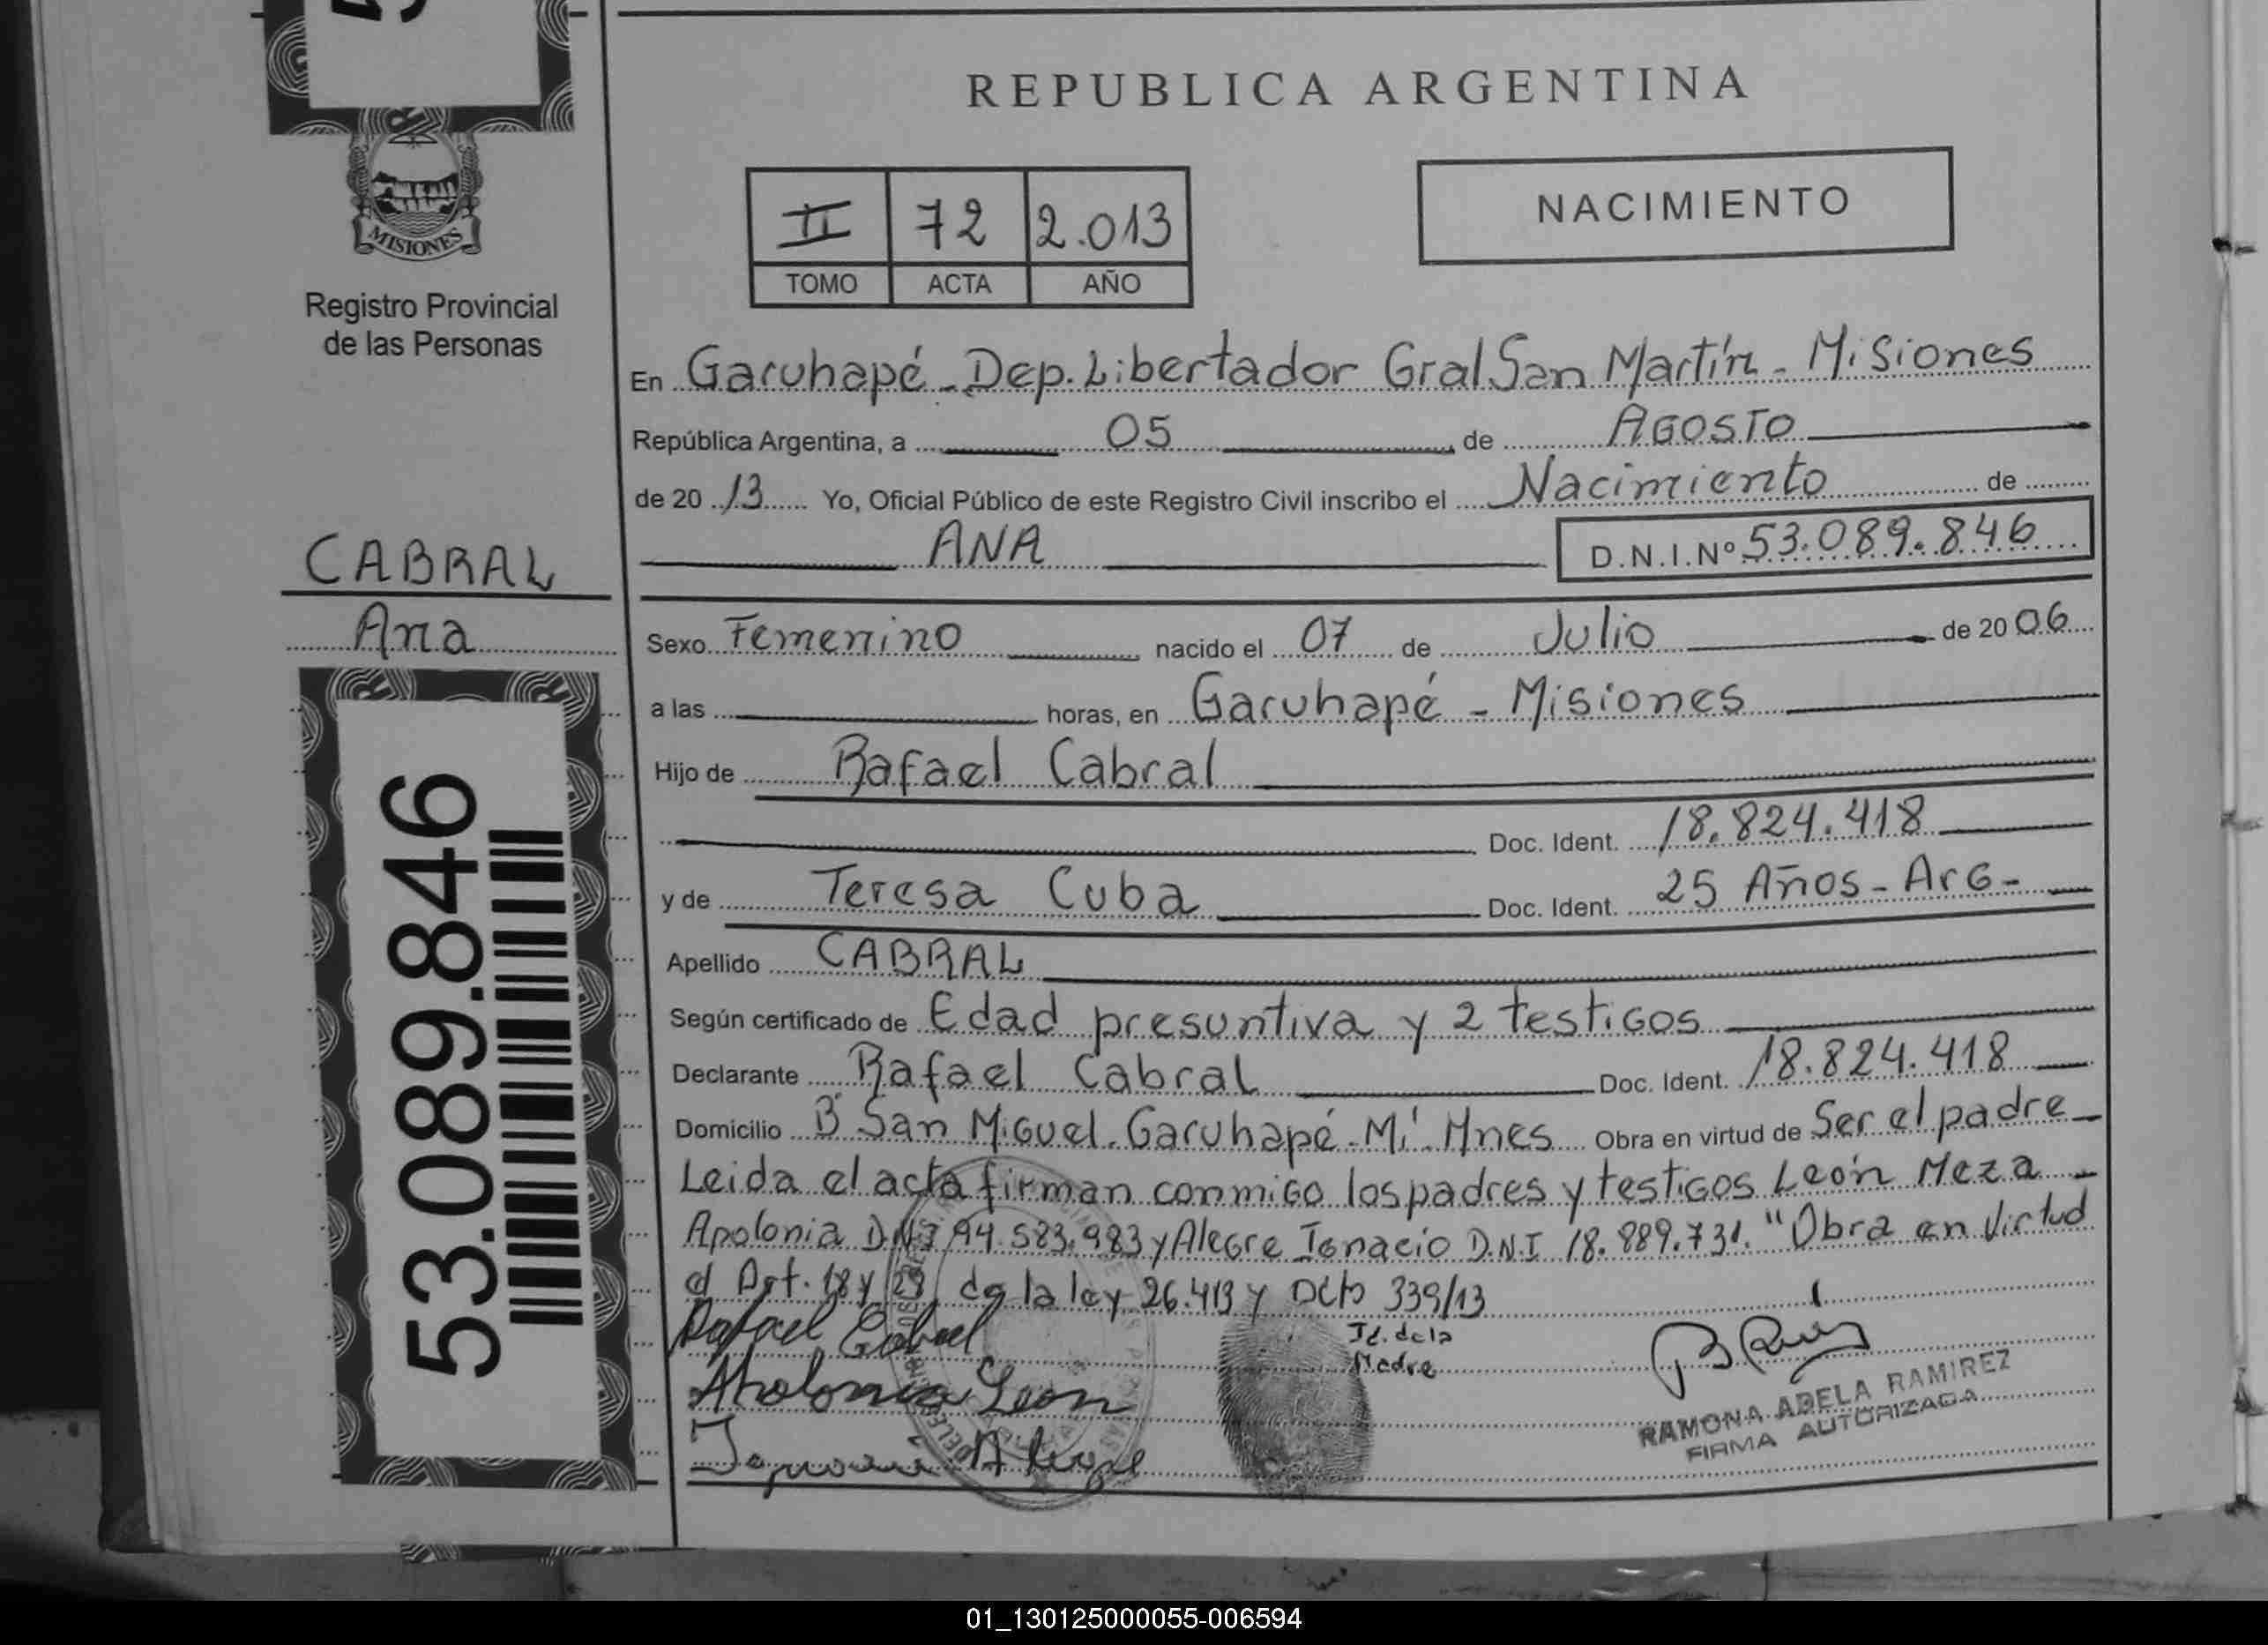 REPUBLICA ARGENTINA
NACIMIENTO
II 72 2.013
TOMO ACTA AÑO
MISIONES
Registro Provincial
de las Personas
En Garuhapé - Dep. Libertador Gral San Martín - Misiones
República Argentina, a 05 de AGOSTO
de 20 13 Yo, Oficial Público de este Registro Civil inscribo el Nacimiento de
ANA D.N.I.Nº 53.089.846
CABRAL
Ana
Sexo Femenino nacido el 07 de Julio de 20 06
a las horas, en Garuhapé - Misiones
Hijo de Rafael Cabral
Doc. Ident. 18.824.418
y de Teresa Cuba Doc. Ident. 25 Años - Arg -
Apellido CABRAL
Según certificado de Edad presuntiva y 2 testigos
Declarante Rafael Cabral Doc. Ident. 18.824.418
Domicilio Bº San Miguel - Garuhapé - Mí - Mnes Obra en virtud de Ser el padre
Leida el acta firman conmigo los padres y testigos León Meza
Apolonia D.N.I 94.583.983 y Alegre Ignacio D.N.I 18.889.731. "Obra en Virtud
d Art. 18 y 29 de la ley 26.413 y Dcto 339/13
Rafael Cabral
Apolonia Leon
Id. de la
Madre
RAMONA ABELA RAMIREZ
FIRMA AUTORIZADA
53.089.846
01_130125000055-006594